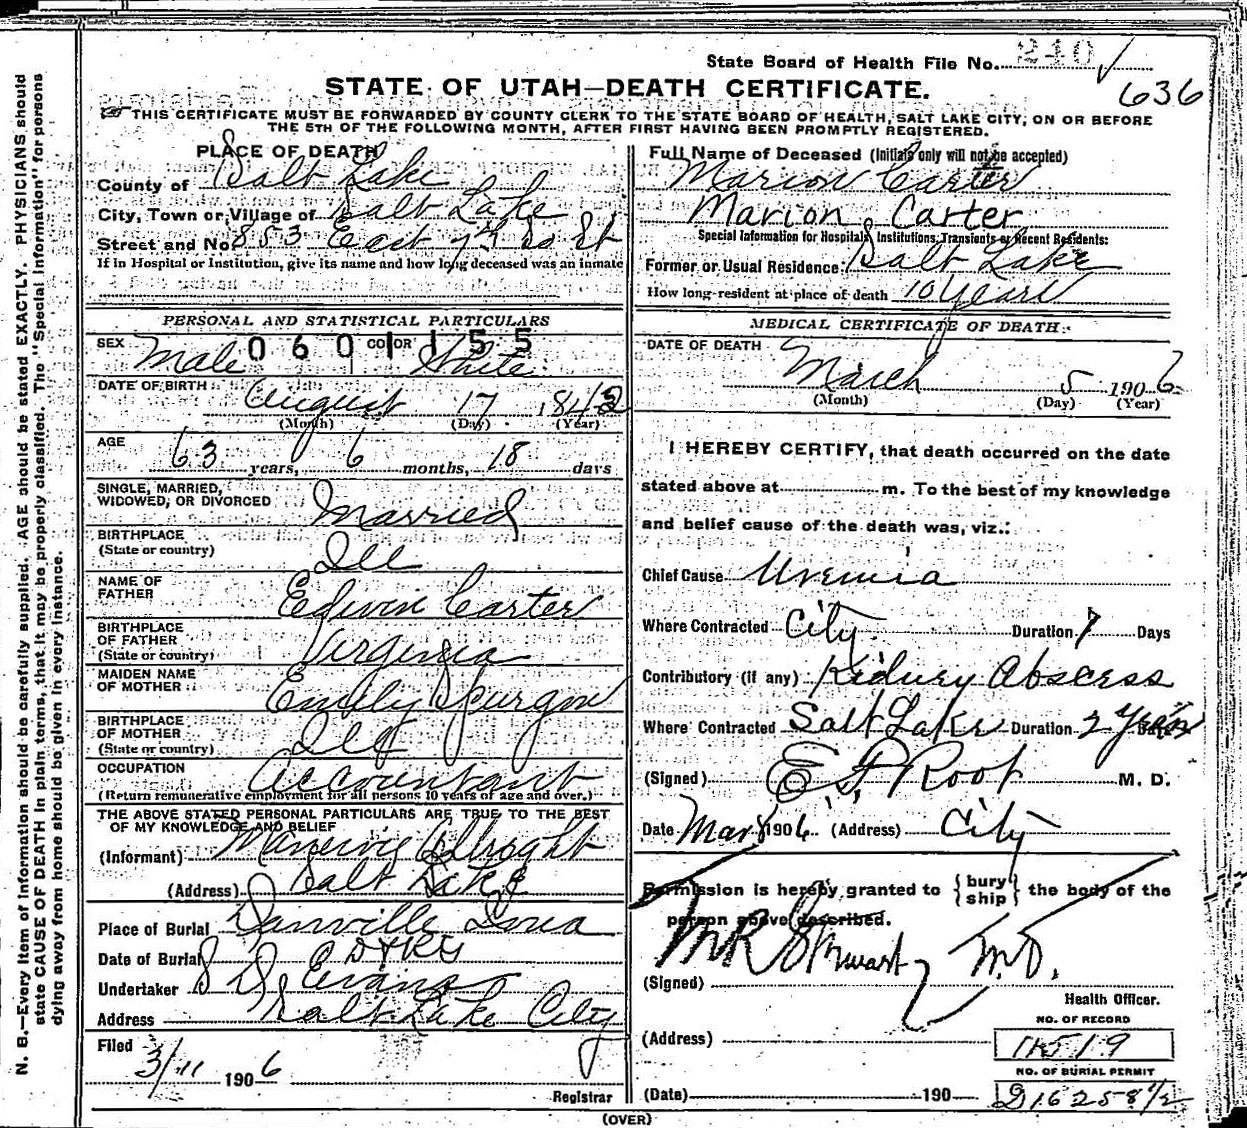 State Board of Health File No. 240
636
STATE OF UTAH—DEATH CERTIFICATE.
THIS CERTIFICATE MUST BE FORWARDED BY COUNTY CLERK TO THE STATE BOARD OF HEALTH, SALT LAKE CITY, ON OR BEFORE
THE 5TH OF THE FOLLOWING MONTH, AFTER FIRST HAVING BEEN PROMPTLY REGISTERED.
PLACE OF DEATH
County of Salt Lake
City, Town or Village of Salt Lake
Street and No. 853 East 7th So St
If in Hospital or Institution, give its name and how long deceased was an inmate
PERSONAL AND STATISTICAL PARTICULARS
SEX Male 060 COLOR 1155 White
DATE OF BIRTH August 17 1842
(Month) (Day) (Year)
AGE 63 years, 6 months, 18 days
SINGLE, MARRIED,
WIDOWED, OR DIVORCED Married
BIRTHPLACE
(State or country) Ill
NAME OF
FATHER Edwin Carter
BIRTHPLACE
OF FATHER
(State or country) Virginia
MAIDEN NAME
OF MOTHER Emily Spurgon
BIRTHPLACE
OF MOTHER
(State or country) Ill
OCCUPATION Accountant
(Return remunerative employment for all persons 10 years of age and over.)
THE ABOVE STATED PERSONAL PARTICULARS ARE TRUE TO THE BEST
OF MY KNOWLEDGE AND BELIEF
(Informant)
(Address) Salt Lake
Place of Burial Danville Iowa
Date of Burial
Undertaker S D Evans
Address Salt Lake City
Filed
3/11 1906
Registrar
Full Name of Deceased (Initials only will not be accepted)
Marion Carter
Marion Carter
Special Information for Hospitals, Institutions, Transients or Recent Residents:
Former or Usual Residence Salt Lake
How long resident at place of death 10 years
MEDICAL CERTIFICATE OF DEATH
DATE OF DEATH
March 5 1906
(Month) (Day) (Year)
I HEREBY CERTIFY, that death occurred on the date
stated above at m. To the best of my knowledge
and belief cause of the death was, viz.:
Chief Cause Uremia
Where Contracted City Duration 7 Days
Contributory (if any) Kidney Abscess
Where Contracted Salt Lake Duration 2 Years
(Signed) E. F. Root M. D.
Date Mar 8 1906 (Address) City
Permission is hereby granted to {bury ship} the body of the
person above described.
(Signed) M R Stewart M.D.
Health Officer.
(Address)
NO. OF RECORD
11519
NO. OF BURIAL PERMIT
(Date) 190 D16258 1/2
(OVER)
N. B.—Every item of information should be carefully supplied. AGE should be stated EXACTLY. PHYSICIANS should
state CAUSE OF DEATH in plain terms, that it may be properly classified. The "Special Information" for persons
dying away from home should be given in every instance.